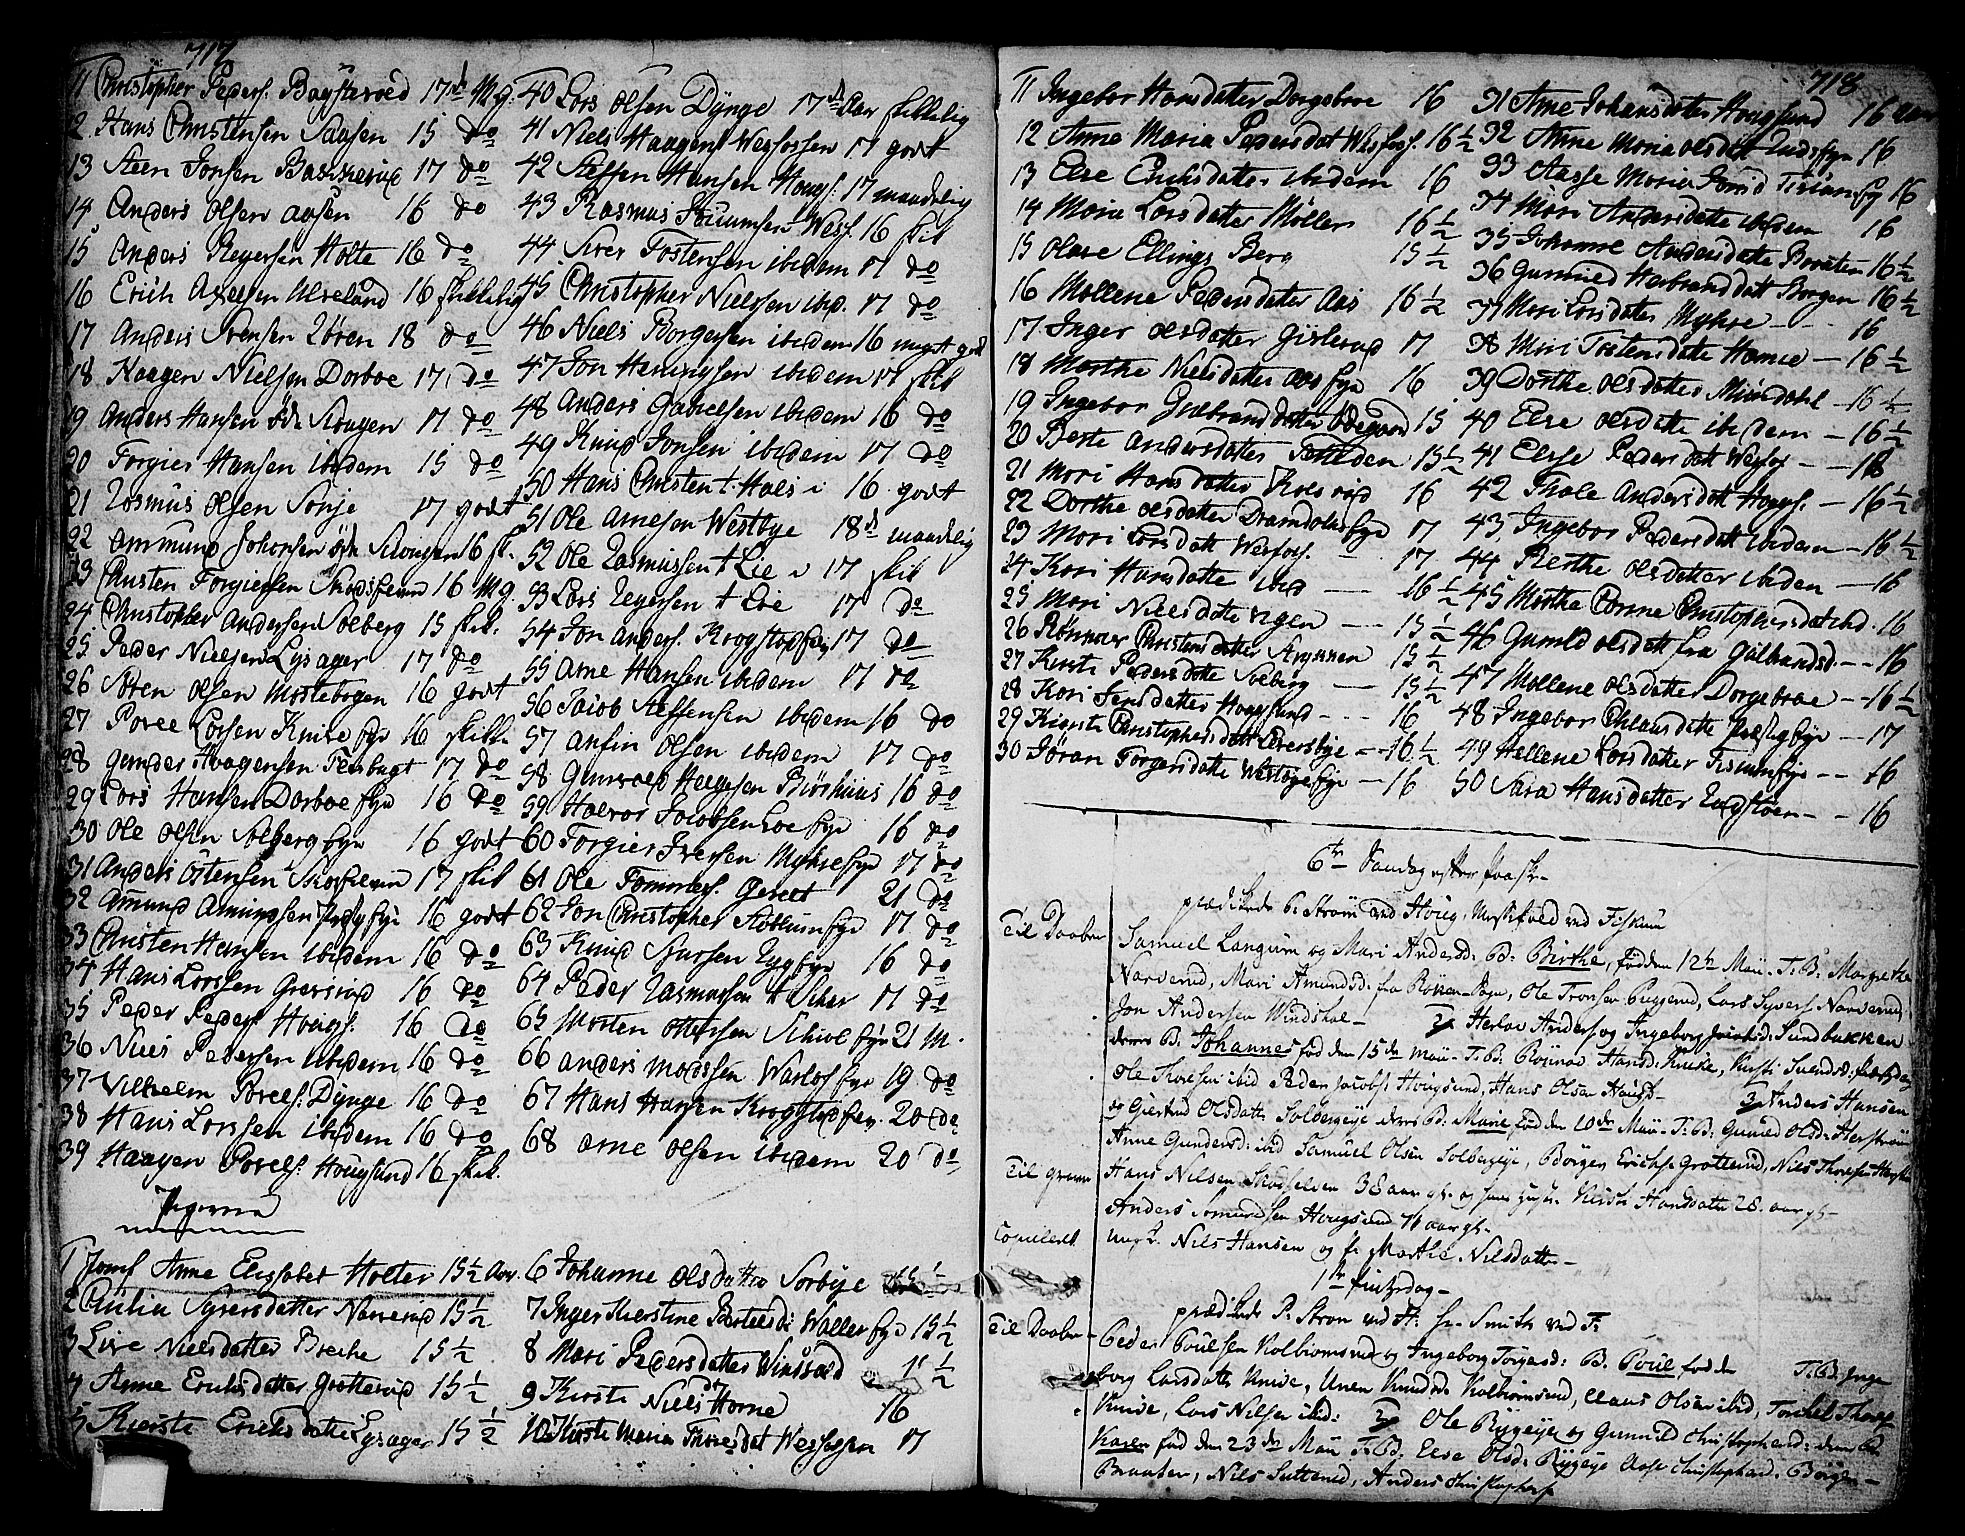 717
11 Christopher Peders. Bagsteroed 17 M.g.
12 Hans Christensen Aassen 15 do
13 Steen Jonsen Backerud 17 do
14 Anders Olsen Aasen 16 do
15 Anders Reyersen Holte 16 do
16 Erich Axelsen Ulveland 16 skikkelig
17 Anders Svensen 18 do
18 Haagen Nielsen Dorboe 17 do
19 Anders Hansen Øde Skougen 17 do
20 Torgier Hansen ibidem 15 do
21 Rasmus Olsen Sonje 17 godt
22 Ammund Johansen Øde Skougen 16 sk.
23 Christen Torgiersen Skodselven 16 M.g.
24 Christopher Andersen Solberg 15 skik.
25 Peder Nielsen Lysager 17 do
26 Søren Olsen Mostebogen 16 godt
27 Povel Larsen Knive Eye 16 skikk.
28 Gunder Haagensen Teesbugt 17 do
29 Lars Hansen Dorboe Eye 16 do
30 Ole Olsen Solberg Eye 16 godt
31 Anders Østensen Skodselven 17 skik
32 Amund Amundsen Præsteye 16 godt
33 Christen Hansen ibidem 16 do
34 Hans Larsen Grøsrud 16 do
35 Peder Peders. Hougs. 16 do
36 Niels Pedersen ibidem 16 do
37 Vilhelm Povels. Dynge 16 do
38 Hans Larsen ibidem 16 do
39 Haagen Povels. Hougsund 16 skik.
40 Lars Olsen Dynge 17 Aar skikkelig
41 Niels Haagens. Wesfossen 17 godt
42 Steffen Hansen Hougs. 17 maadelig
43 Rasmus Truumsen Wesf. 16 skik
44 Siver Tostensen ibidem 17 do
45 Christopher Nielsen ibid. 17 do
46 Niels Borgersen ibidem 16 meget god
47 Jon Henningsen ibidem 17 skik
48 Anders Gabrielsen ibidem 16 do
49 Knud Jonsen ibidem 17 do
50 Hans Christen t. Hals i 16 godt
51 Ole Arnesen Westbye 18 maadelig
52 Ole Rasmussen t Lie i 17 skik
53 Lars Reyersen t Loe 17 do
54 Jon Anders. Krogstad Eye 17 do
55 Arne Hansen ibidem 17 do
56 Jacob Steffensen ibidem 16 do
57 Ansin Olsen ibidem 17 do
58 Gunvald Helgesen Børshuus 16 do
59 Halvor Jacobsen Loe Eye 16 do
60 Torgier Iversen Myhre Eye 17 do
61 Ole Tommes. Gereet 21 do
62 Jon Christopher Stokkum Eye 17 do
63 Knud Siursen Ryg Eye 16 do
64 Peder Rasmussen t Seker 17 do
65 Morten Ottersen Schiol Eye 21 M.
66 Anders Madssen Warlos Eye 19 do
67 Hans Hansen Krogstad Eye 20 do
68 Arne Olsen ibidem 20 do
Pigerne
1 Jomf. Anne Elisabet Holter 15½ Aar.
2 Paulia Syversdatter Narverud 15½
3 Live Nielsdatter Breche 15½
4 Anne Erichsdatter Grøtterud 15½
5 Kierste Erichsdatter Lysager 15½
6 Johanne Olsdatter Sorbye
7 Inger Kierstine Bertelsd: Waller Eye 15½
8 Mari Pedersdatter Windsvold
9 Kierste Niels Horne 16
10 Kierste Maria Thoresdat Wesfossen 17
718
11 Ingebor Hansdatter Dorgeboe 16
12 Anne Maria Pedersdat Wesfoss. 16½
13 Else Erichsdatter ibidem 16
14 Maria Larsdatter Møller 16½
15 Olave Ellings Berg 15½
16 Mallene Pedersdatter Aas 16½
17 Inger Olsdatter Gislerud 17
18 Marthe Nielsdatter Aas Eye 16
19 Ingebor Gulbrandsdatter Ødegaard 15
20 Berte Andersdatter Tellden 15½
21 Mari Hansdatter Kolsrød 16
22 Dorthe Olsdatter Dramdahls Eye 17
23 Mari Larsdatt Wesfoss. 17
24 Kari Hansdatte ibid 16½
25 Mari Nielsdatte 15½
26 Rønnaver Christensdatter 15½
27 Kirsti Pedersdatte Solberg 15½
28 Kari Jensdatter Hougsund 16
29 Kierste Christophersdatt Eversbye 16½
30 Jøran Torgersdatte Westbye Eye 16
31 Anne Johansdatter Hougsund 16 aar
32 Anne Maria Olsdatt Lunds Eye 16
33 Aasse Maria Jonsd Fiskum Ey 16
34 Mari Andersdatte ibidem 16
35 Johanne Andersdatte Braaten 16½
36 Gunnild Harbrandsdatt Borgen 16½
37 Mari Larsdatter Myhre 16
38 Mari Tostensdatte Hamre 16½
39 Dorthe Olsdatter Miøndahl 16½
40 Else Olsdatte ibidem 16½
41 Else Pedersdatt Wesfos 18
42 Thale Andersdatt Hougs. 16½
43 Ingebor Pedersdatt ibidem 16½
44 Berthe Olsdatter ibidem 16
45 Marthe Corine Christophersdatt ibid. 16
46 Gunild Olsdatt fra Gulbrandsd 16
47 Mallene Olsdatter Dorgeboe 16½
48 Ingebor Ehlausdatte Præstegbye 17
49 Hellene Larsdatter Fiskum Eye 16
50 Sara Hansdatter Lundstøen 16
6te Søndag efter Paaske
prædikede P. Strøm ved Houg, Musfeldt ved Fiskum
Til Daaben Samuel Langum og Mari Andersd: B: Birthe, født den 12te Maii. T.B: Margrethe
Narverud, Mari Amundsd: fra Røken Sogn, Ole Tronsen Byggerud, Lars Syvers: Narverud,
Jon Andersen Windskol 2, Herlov Anders: og Ingeborg Jonsd: Sundbukken
deres B: Johannes født den 15de Maii. T.B: Rønnov Hansd: Knive, Kirsti Svendsd:
Ole Thoresen ibid Peder Jacobs: Hougsund, Hans Olsen Hougs 3, Anders Hansen
og Giertrud Olsdatter Solbergeye deres B: Marie født den 10de Maii T.B: Gunild Olsd: Herstrøm
Anne Gundersd: ibid Samuel Olsen Solbergeye, Børger Erichs: Grøtterud, Nils Thoresen
Til Graven Hans Nilsen Skodselven 38 aar gl. og hans Hustr. Kirsti Hansdatter 28 aar gl.
Anders Amundsen Hougsund 76 aar gl.
Copuleret Ungk. Nils Hansen og P. Marthe Nilsdatter
1te Pintzedag
prædikede P. Strøm ved H: Hr. Smith ved F:
Til Daaben Peder Poulsen Kolbiørnsrud og Ingeborg Torgersd: B. Poul født den T.B. Inge
borg Larsdatter Knive, Unen Knudsd: Kolbiørnsrud, Claus Olsen ibid, Torkel Thors
Knive, Lars Nilsen ibid: 2, Ole Rygeye og Gunnild Christophersd: deres B:
Karen født den 23de Maii T.B. Else Olsd: Rygeye Aase Christophersd. Børger
Braaten, Nils Sutterud, Anders Christophers